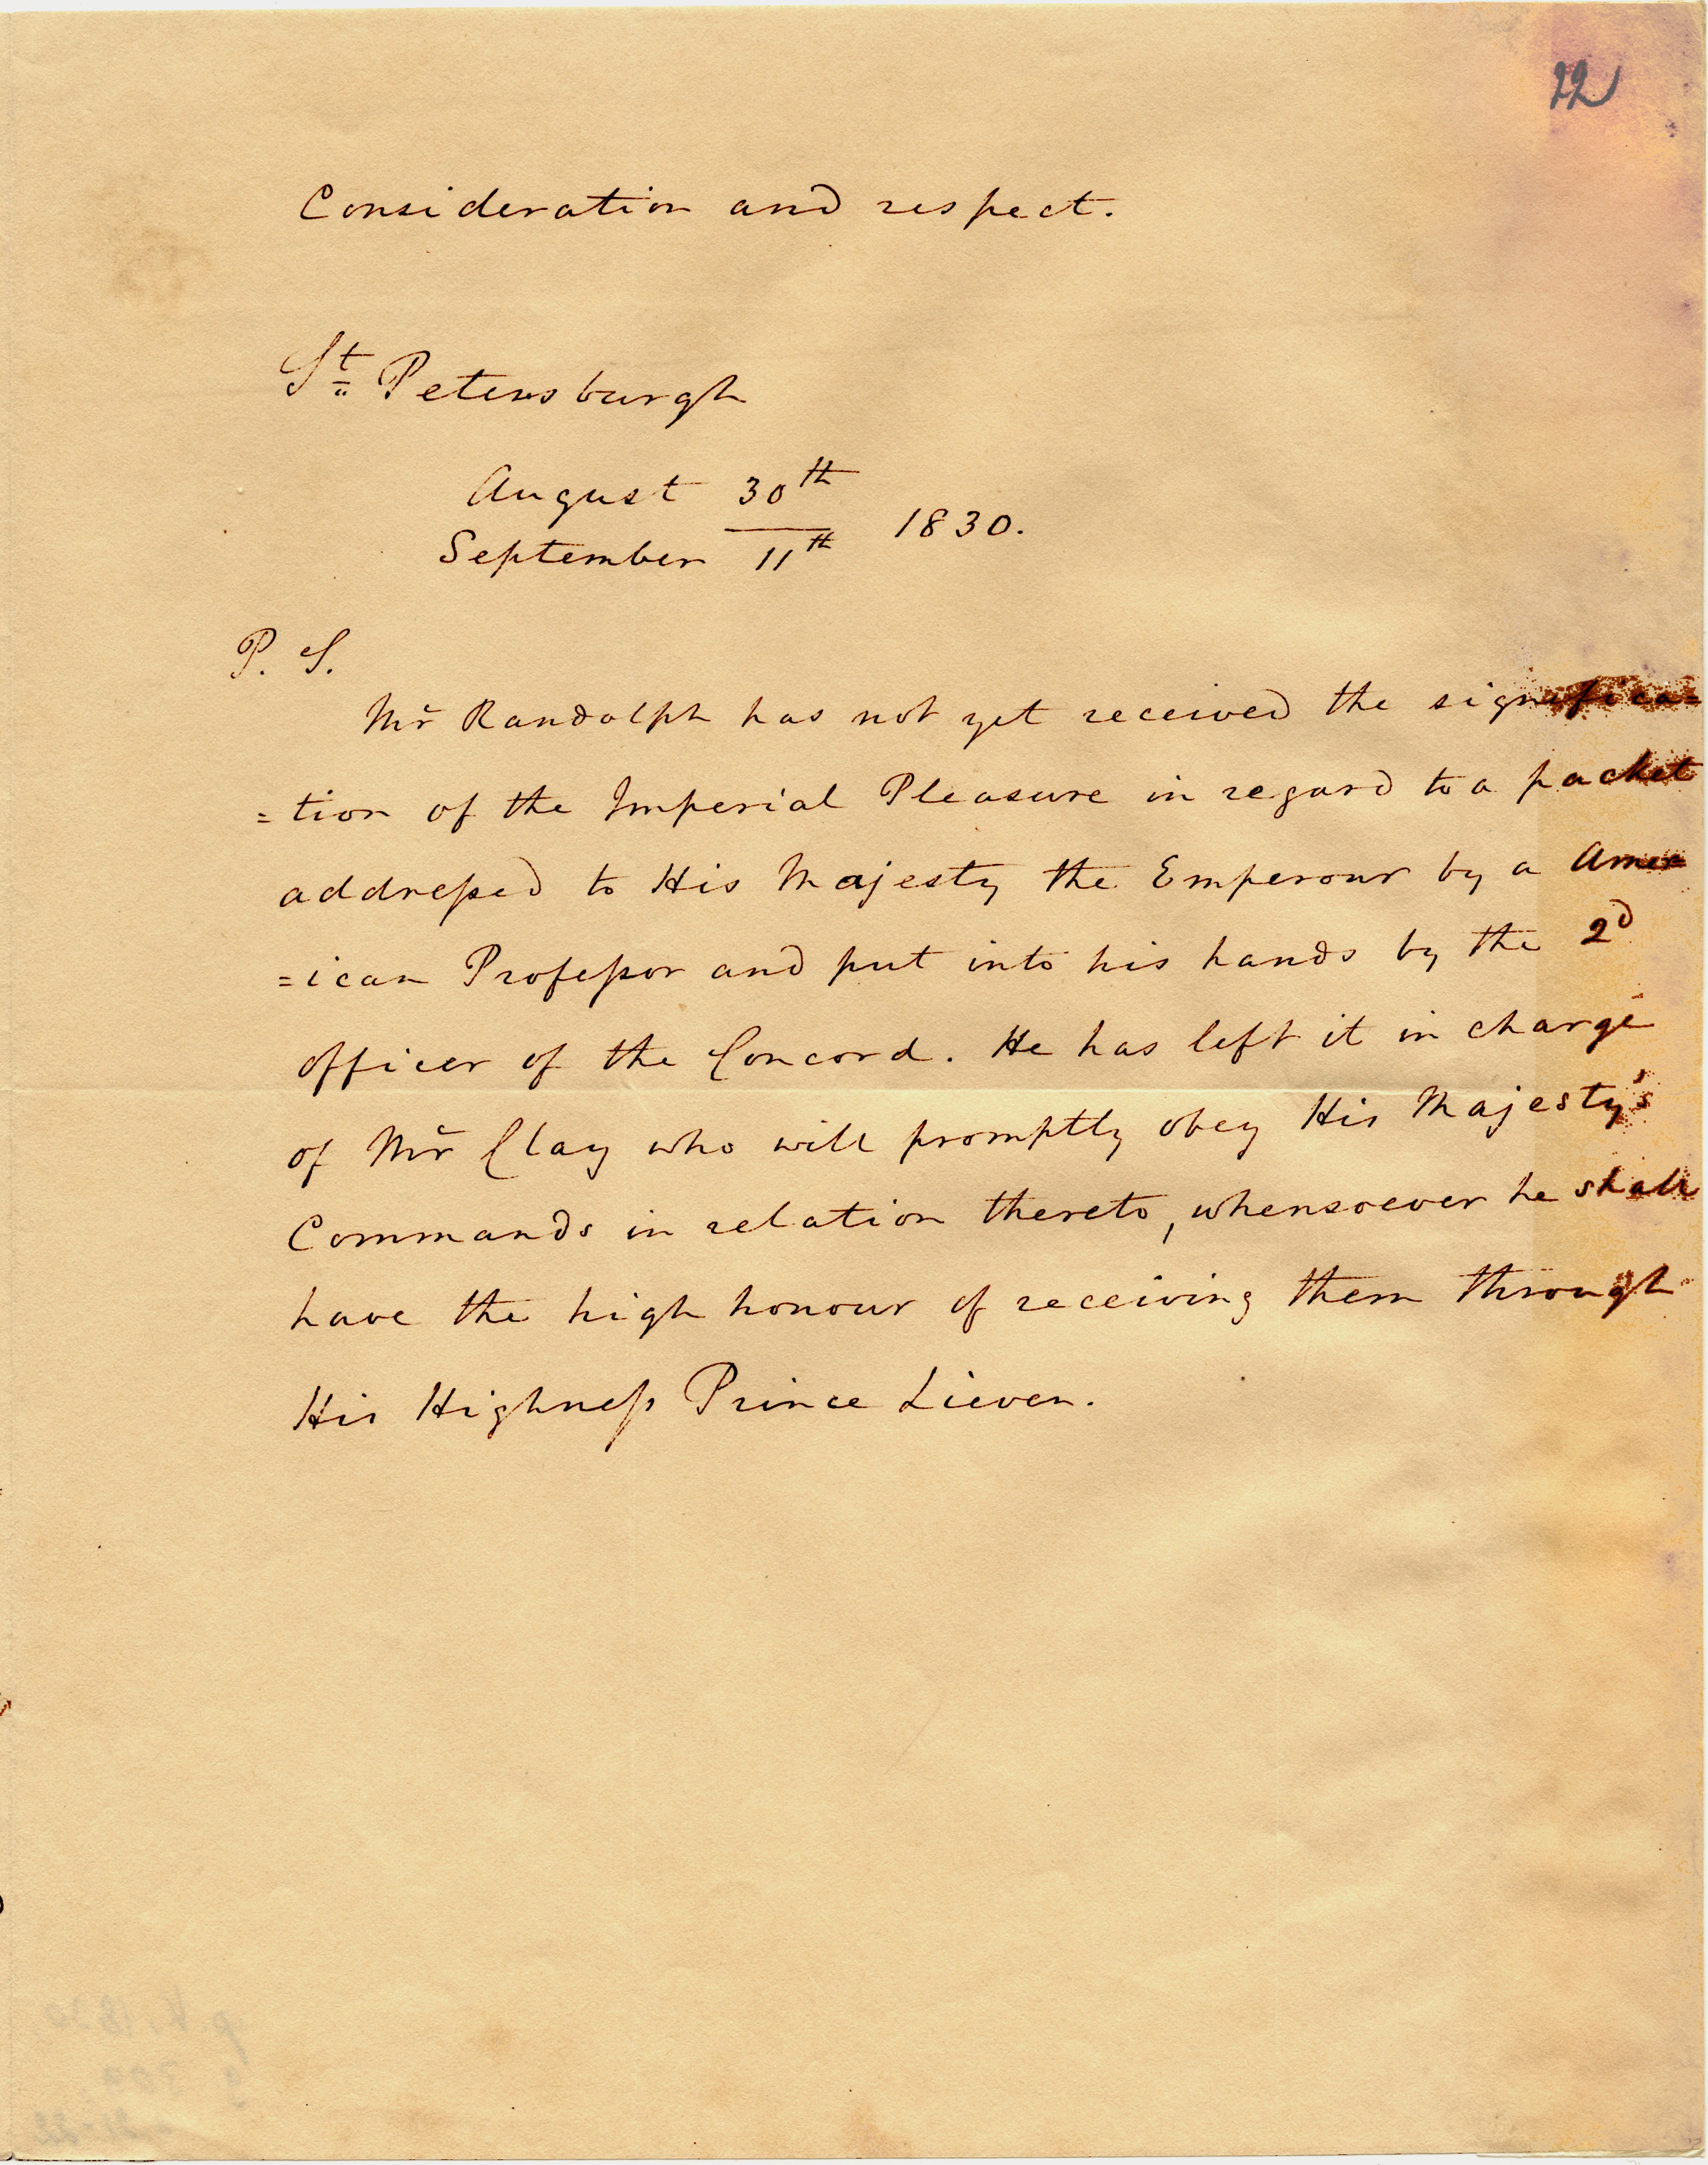 22
Consideration and respect.
St Petersburgh
August 30th
September 11th 1830.
P. S.
Mr Randolph has not yet received the significa=
=tion of the Imperial Pleasure in regard to a packet
addressed to His Majesty the Emperour by a Amer=
=ican Professor and put into his hands by the 2d
officer of the Concord. He has left it in charge
of Mr Clay who will promptly obey His Majesty's
Commands in relation thereto, whensoever he shall
have the high honour of receiving them through
His Highness Prince Lieven.